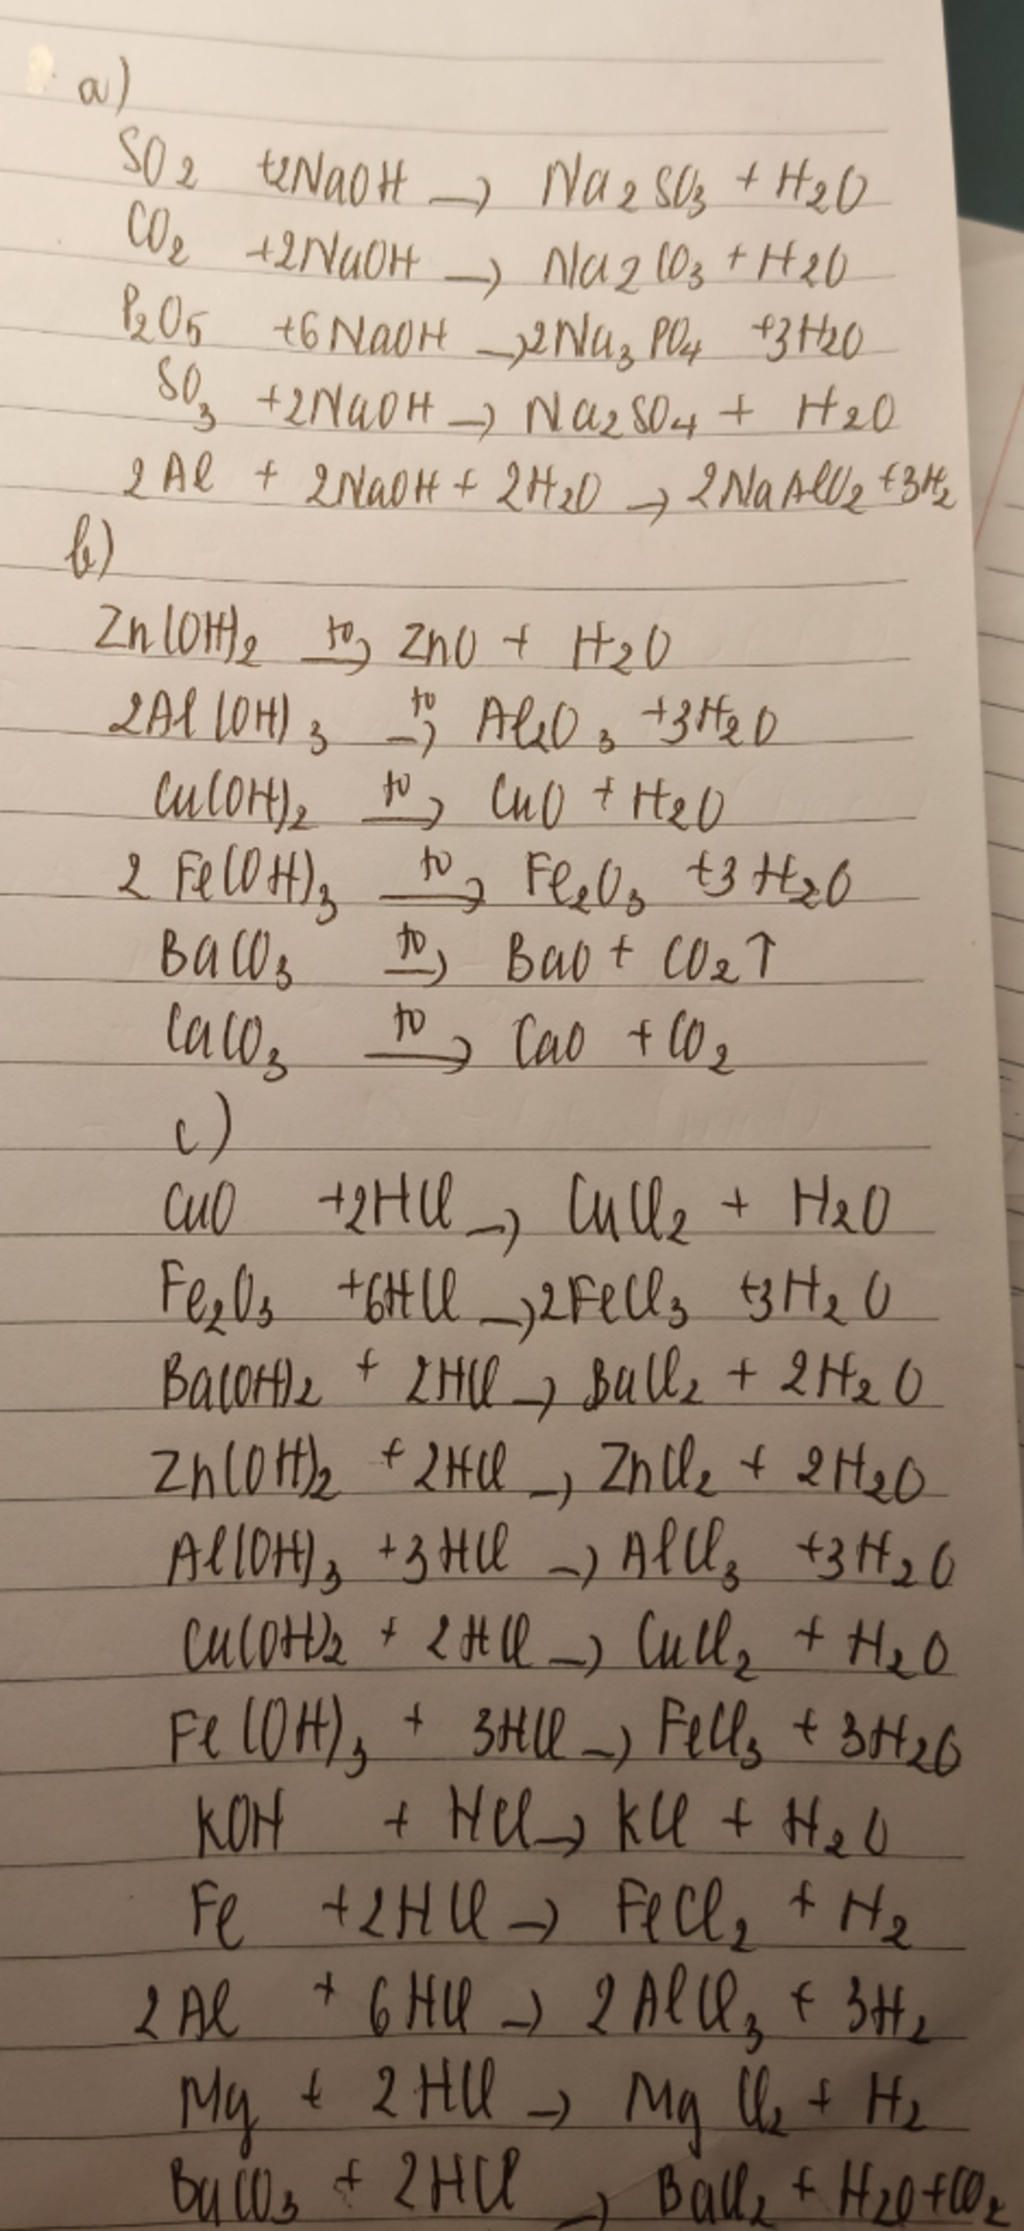 a)
SO2 +2NaOH → Na2SO3 + H2O
CO2 +2NaOH → Na2CO3 + H2O
P2O5 +6NaOH → 2Na3PO4 +3H2O
SO3 +2NaOH → Na2SO4 + H2O
2Al + 2NaOH + 2H2O → 2NaAlO2 +3H2
b)
Zn(OH)2 t0→ ZnO + H2O
2Al(OH)3 t0→ Al2O3 +3H2O
Cu(OH)2 t0→ CuO + H2O
2Fe(OH)3 t0→ Fe2O3 +3H2O
BaCO3 t0→ BaO + CO2↑
CaCO3 t0→ CaO + CO2
c)
CuO +2HCl → CuCl2 + H2O
Fe2O3 +6HCl → 2FeCl3 +3H2O
Ba(OH)2 + 2HCl → BaCl2 + 2H2O
Zn(OH)2 + 2HCl → ZnCl2 + 2H2O
Al(OH)3 +3HCl → AlCl3 +3H2O
Cu(OH)2 + 2HCl → CuCl2 + H2O
Fe(OH)3 + 3HCl → FeCl3 + 3H2O
KOH + HCl → KCl + H2O
Fe +2HCl → FeCl2 + H2
2Al + 6HCl → 2AlCl3 + 3H2
Mg + 2HCl → MgCl2 + H2
BaCO3 + 2HCl → BaCl2 + H2O+CO2